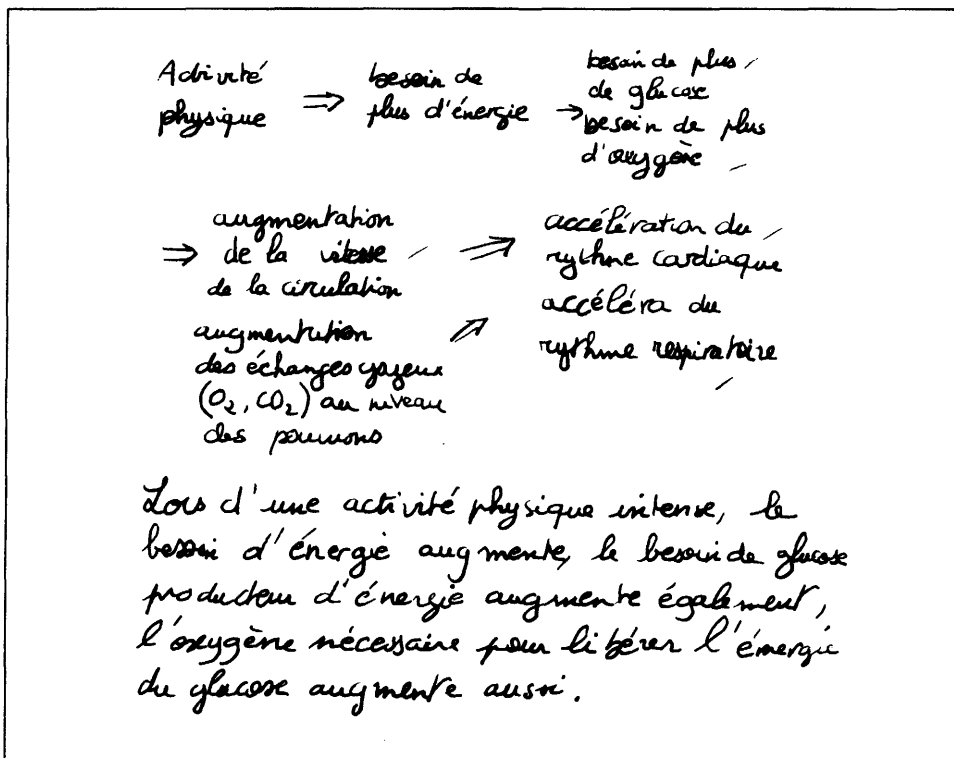 Activité
physique
⇒
besoin de
plus d'énergie
→
besoin de plus
de glucose
besoin de plus
d'oxygène
⇒
augmentation
de la vitesse
de la circulation
⇒
accélération du
rythme cardiaque
augmentation
des échanges gazeux
(O₂, CO₂) au niveau
des poumons
⇒
accéléra du
rythme respiratoire
Lors d'une activité physique intense, le
besoin d'énergie augmente, le besoin de glucose
producteur d'énergie augmente également,
l'oxygène nécessaire pour libérer l'énergie
du glucose augmente aussi.